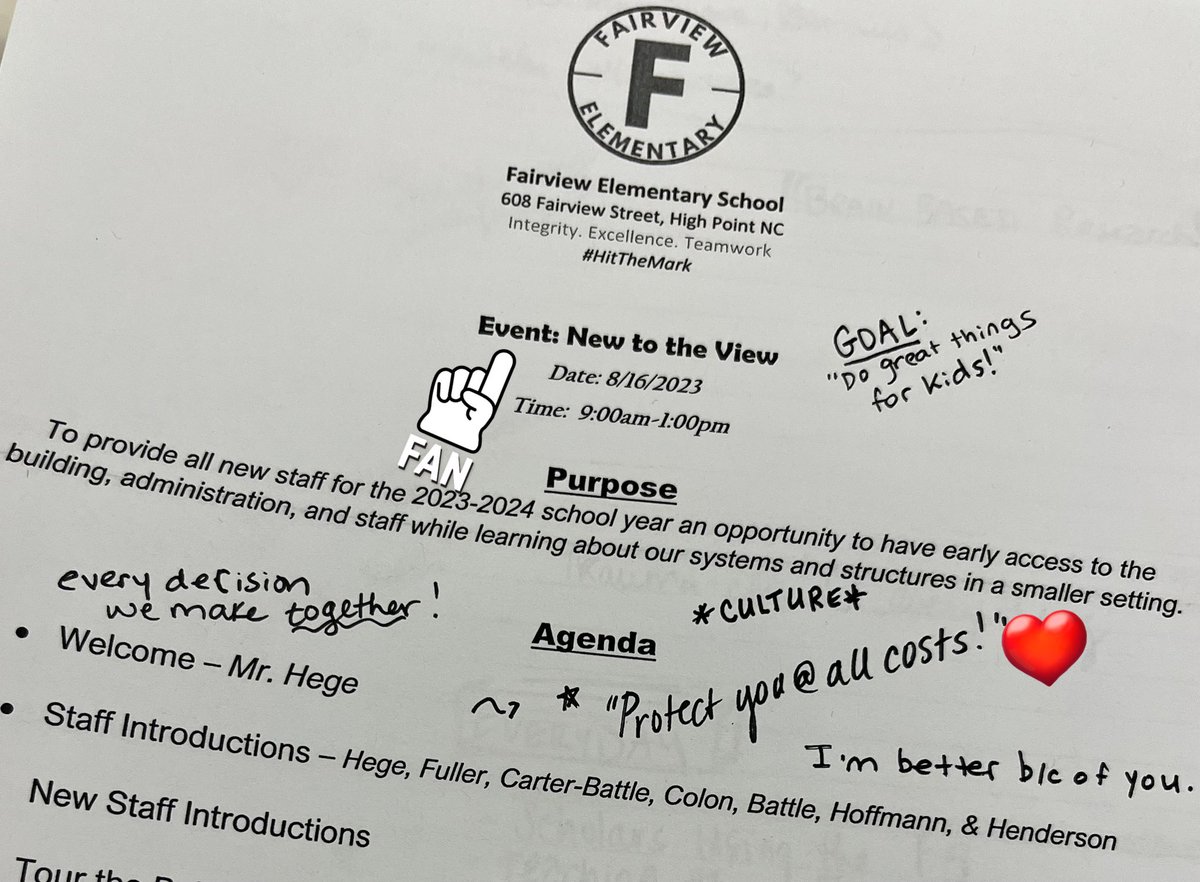 FAIRVIEW
F
ELEMENTARY
Fairview Elementary School
608 Fairview Street, High Point NC
Integrity. Excellence. Teamwork
#HitTheMark
Event: New to the View
Date: 8/16/2023
Time: 9:00am-1:00pm
GOAL:
"Do great things
for kids!"
FAN
Purpose
To provide all new staff for the 2023-2024 school year an opportunity to have early access to the
building, administration, and staff while learning about our systems and structures in a smaller setting.
every decision
we make together!
*CULTURE*
Agenda
• Welcome – Mr. Hege
* "Protect you @ all costs!"
I'm better b/c of you.
• Staff Introductions – Hege, Fuller, Carter-Battle, Colon, Battle, Hoffmann, & Henderson
New Staff Introductions
Tour the